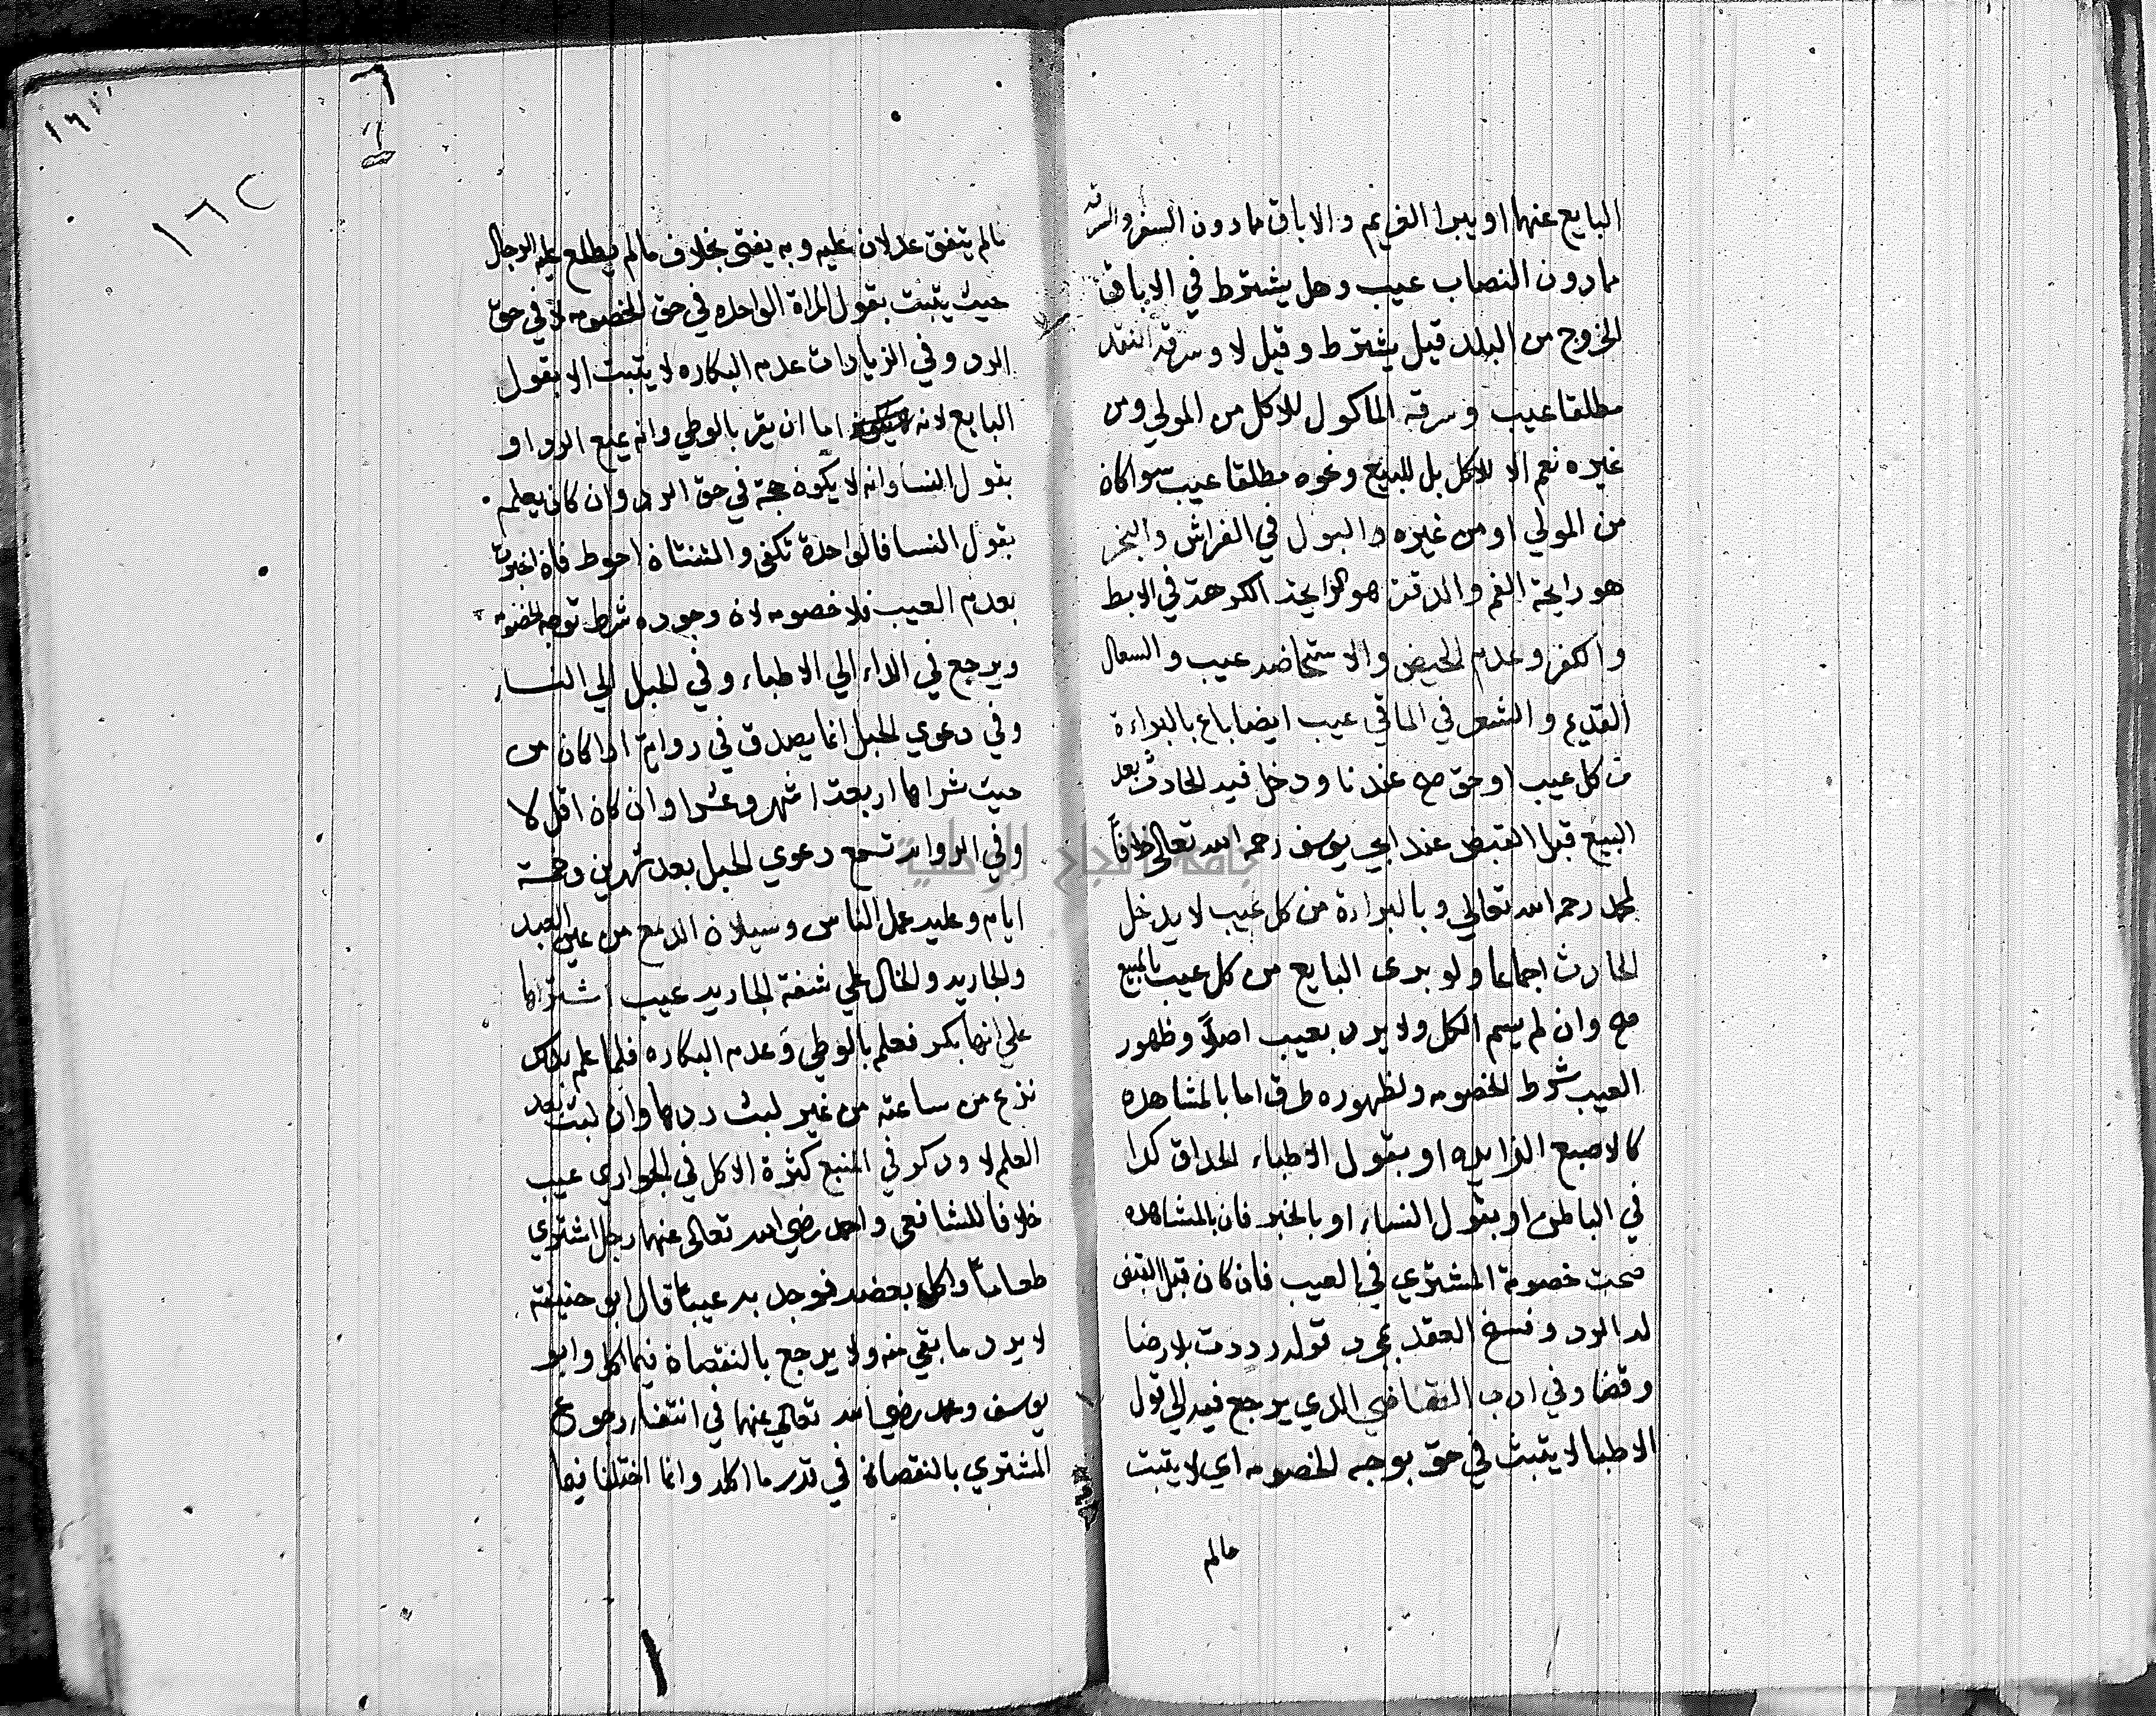 البايع عنهما او يبرا الغريم والاباق مادون السفر والسرقه
مادون النصاب عيب وهل يشترط في الاباق
الخروج من البلد قيل يشترط وقيل لا وسرقه النقد
مطلقا عيب وسرقه الماكول للاكل من المولي ومن
غيره نعم الا للاكل بل للبيع ونحوه مطلقا عيب سواكان
من المولي او من غيره والبول في الفراش والبخر
هو رايحة الفم والدفر هو الرايحة الكرهة في الابط
والكفر وعدم الحيض والاستحاضه عيب والسعال
القديم والشعر في الماقي عيب ايضا باع بالبراءة
من كل عيب او حق صح عندنا ودخل فيه الحادث بعد
البيع قبل القبض عند ابي يوسف رحمه الله تعالى خلافاً
لمحمد رحمه الله تعالي وبالبراءة من كل عيب لا يدخل
الحادث اجماعا ولو بري البايع من كل عيب بالمبيع
صح وان لم يسم الكل ولا يرد بعيب اصلاً وظهور
العيب شرط الخصومه ولظهوره طرق اما بالمشاهده
كالاصبع الزايده او بقول الاطباء الحداق كدا
في الباطن او بقول النساء او بالخبر فان بالمشاهده
صحت خصومة المشتري في العيب فان كان قبل القبض
له الرد وفسخ العقد بمجرد قوله رددت بلا رضا
وقضا وفي ادب القاضي الدي يرجع فيه الي قول
الاطبا لا يتبث في حق بوجه الخصومه اي لا يتبت
مالم
١٦١
١٦٢
مالم يتفق عدلان عليه وبه يفتى بخلاف مالم يطلع عليه الرجال
حيث يتبت بقول المراة الواحده في حق الخصومه لا في حق
الرد وفي الزيادات عدم البكاره لا يتبت الا بقول
البايع لانه اما ان يقر بالوطي وانه يمنع الرد او
بقول النسا وانه لا يكون حجة في حق الرد وان كان يعلم
بقول النسا فالواحدة تكفي والثنتان احوط فان اخبرت
بعدم العيب فلا خصومه لان وجوده شرط توجه الخصومه
ويرجع في الداء الي الاطباء وفي الحبل الي النساء
وفي دعوي الحبل انما يصدق في رواية اذا كان من
حيث شراها اربعة اشهر وعشرا وان كان اقل لا
وفي الروايه تسمع دعوي الحبل بعد شهرين وخمسة
ايام وعليه عمل الناس وسيلان الدمع من عين العبد
والجاريه والخال علي شفة الجاريه عيب اشتراها
علي انها بكر فعلم بالوطي وعدم البكاره فلما علم بذلك
نزع من ساعته من غير لبث ردها وان لبث بعد
العلم لا ودكر في المنبع كثرة الاكل في الجواري عيب
خلافا للشافعي واحمد رضي الله تعالى عنهما رجل اشتري
طعاماً واكل بعضه فوجد به عيباً قال ابو حنيفة
لا يرد ما بقي منه ولا يرجع بالنقصان فيما اكل وابو
يوسف ومحمد رضي الله تعالي عنهما في انتفاء رجوع
المشتري بالنقصان في قدر ما اكله وانما اختلفا فيما
جامعة النجاح الوطنية